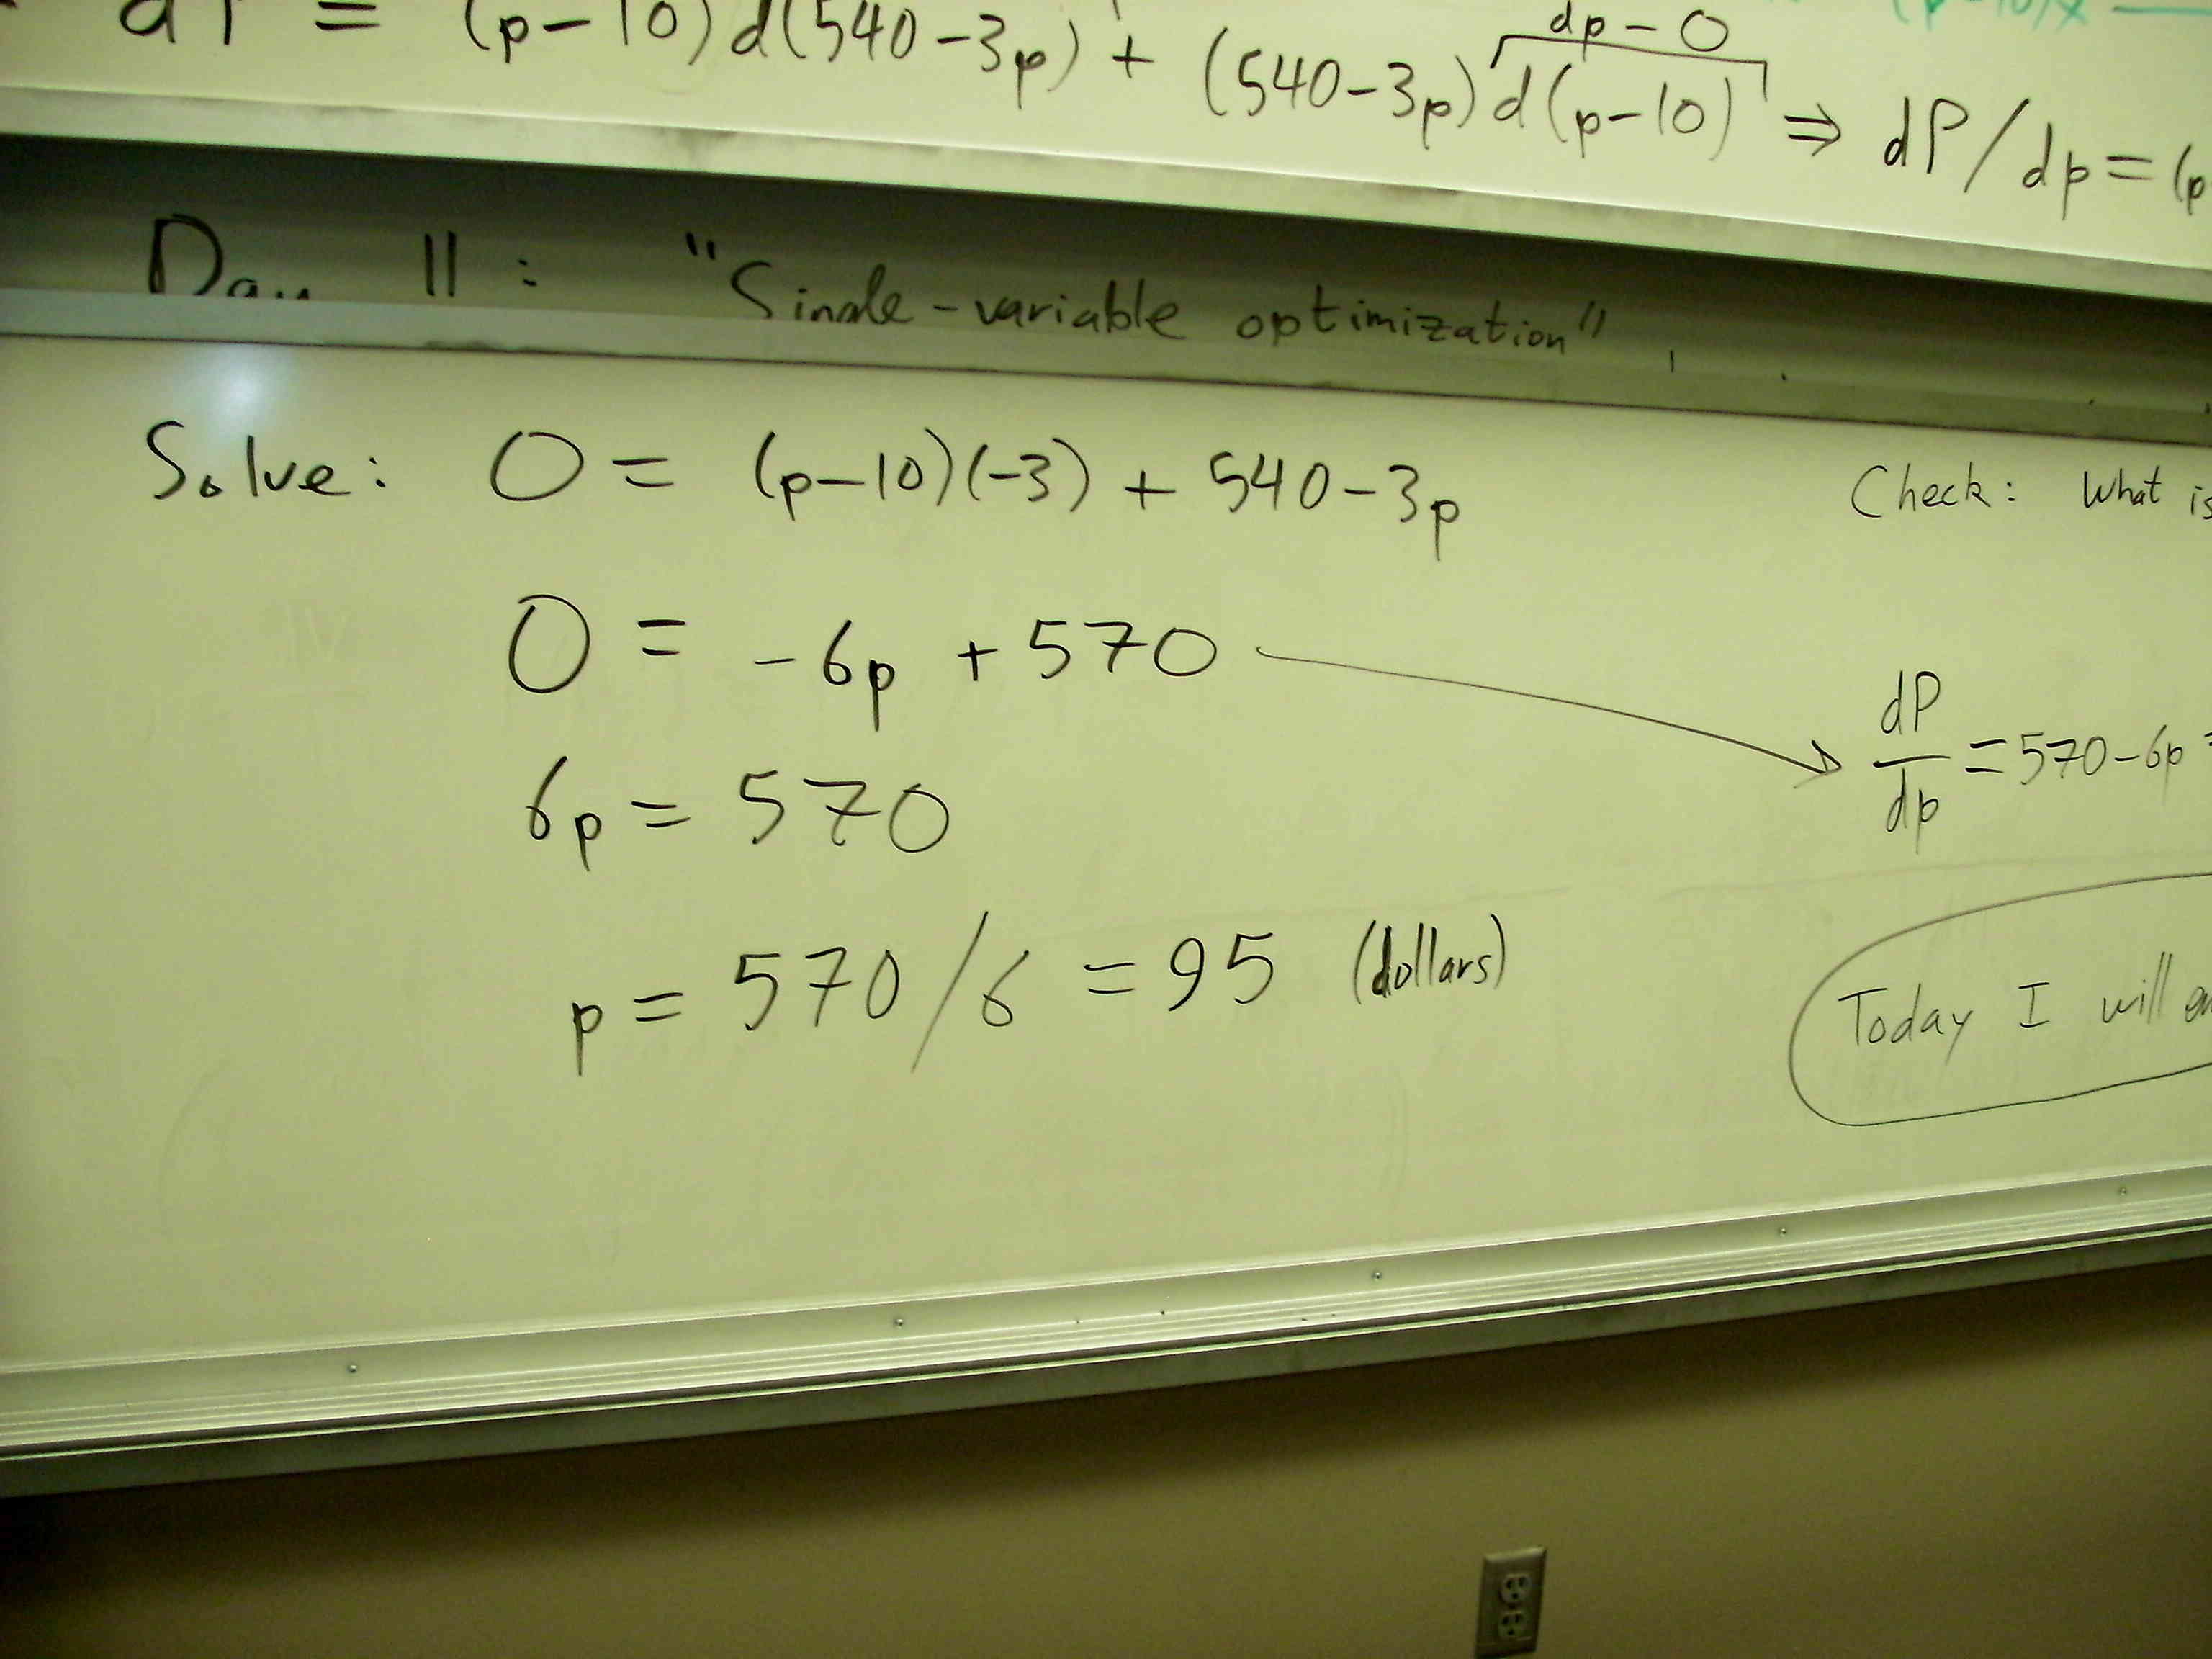 dP = (p-10) d(540-3p) + (540-3p) d(p-10) ⇒ dP/dp = (p
dp - 0
Day 11: "Single-variable optimization"
Solve: 0 = (p-10)(-3) + 540-3p
Check: What is
0 = -6p + 570
dP/dp = 570-6p =
6p = 570
p = 570/6 = 95 (dollars)
Today I will